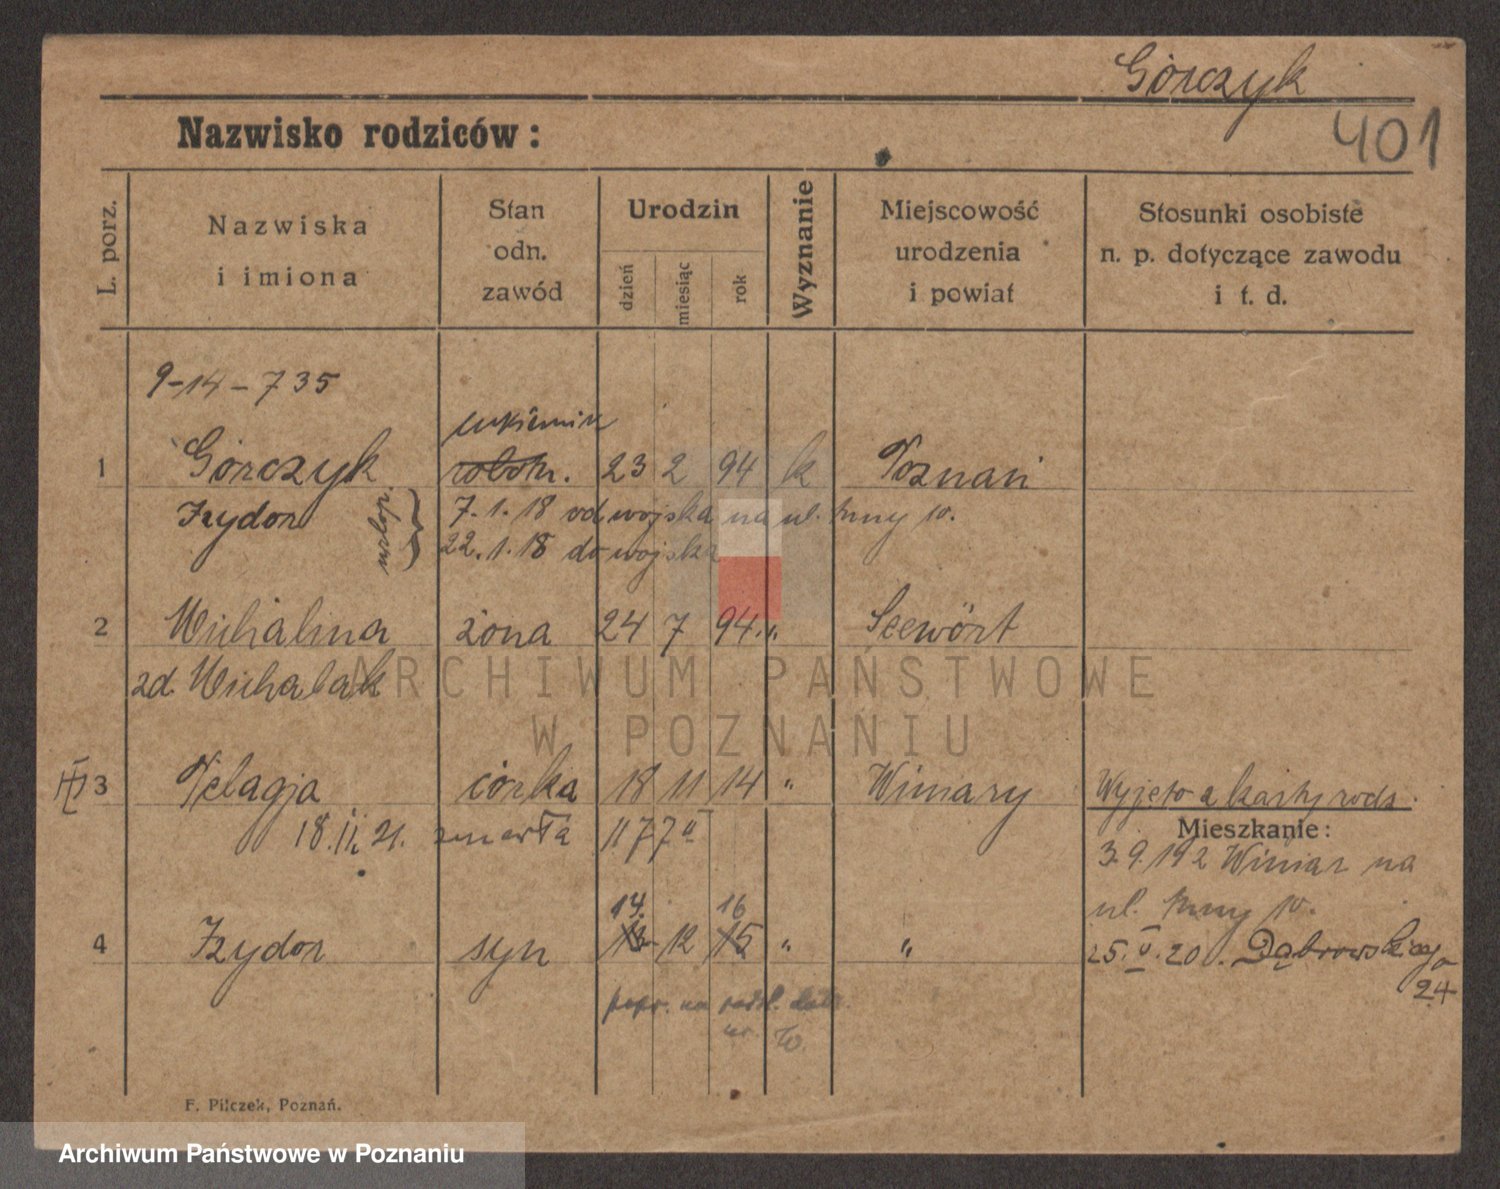 Górczyk
401
Nazwisko rodziców:
L. porz.
Nazwiska
i imiona
Stan
odn.
zawód
Urodzin
dzień
miesiąc
rok
Wyznanie
Miejscowość
urodzenia
i powiat
Stosunki osobiste
n. p. dotyczące zawodu
i t. d.
9-14-735
cukiernik
1 Górczyk robotn. 23 2 94 k Poznań
Izydor
7.1.18 od wojska na ul. 10.
22.1.18 do wojska
2 Michalina żona 24 7 94. " Seewört
zd. Michalak
3 Pelagja córka 18 11 14 " Winiary Wyjęto z karty rodz.
18.11.21. zmarła 11 7 7
Mieszkanie:
3.9.192 Winiar na
ul. 10.
14. 16
4 Izydor syn 13 12 15 " "
25.V.20. Dąbrowskiego
24
popr. na
F. Pilczek, Poznań.
ARCHIWUM PAŃSTWOWE
W POZNANIU
Archiwum Państwowe w Poznaniu